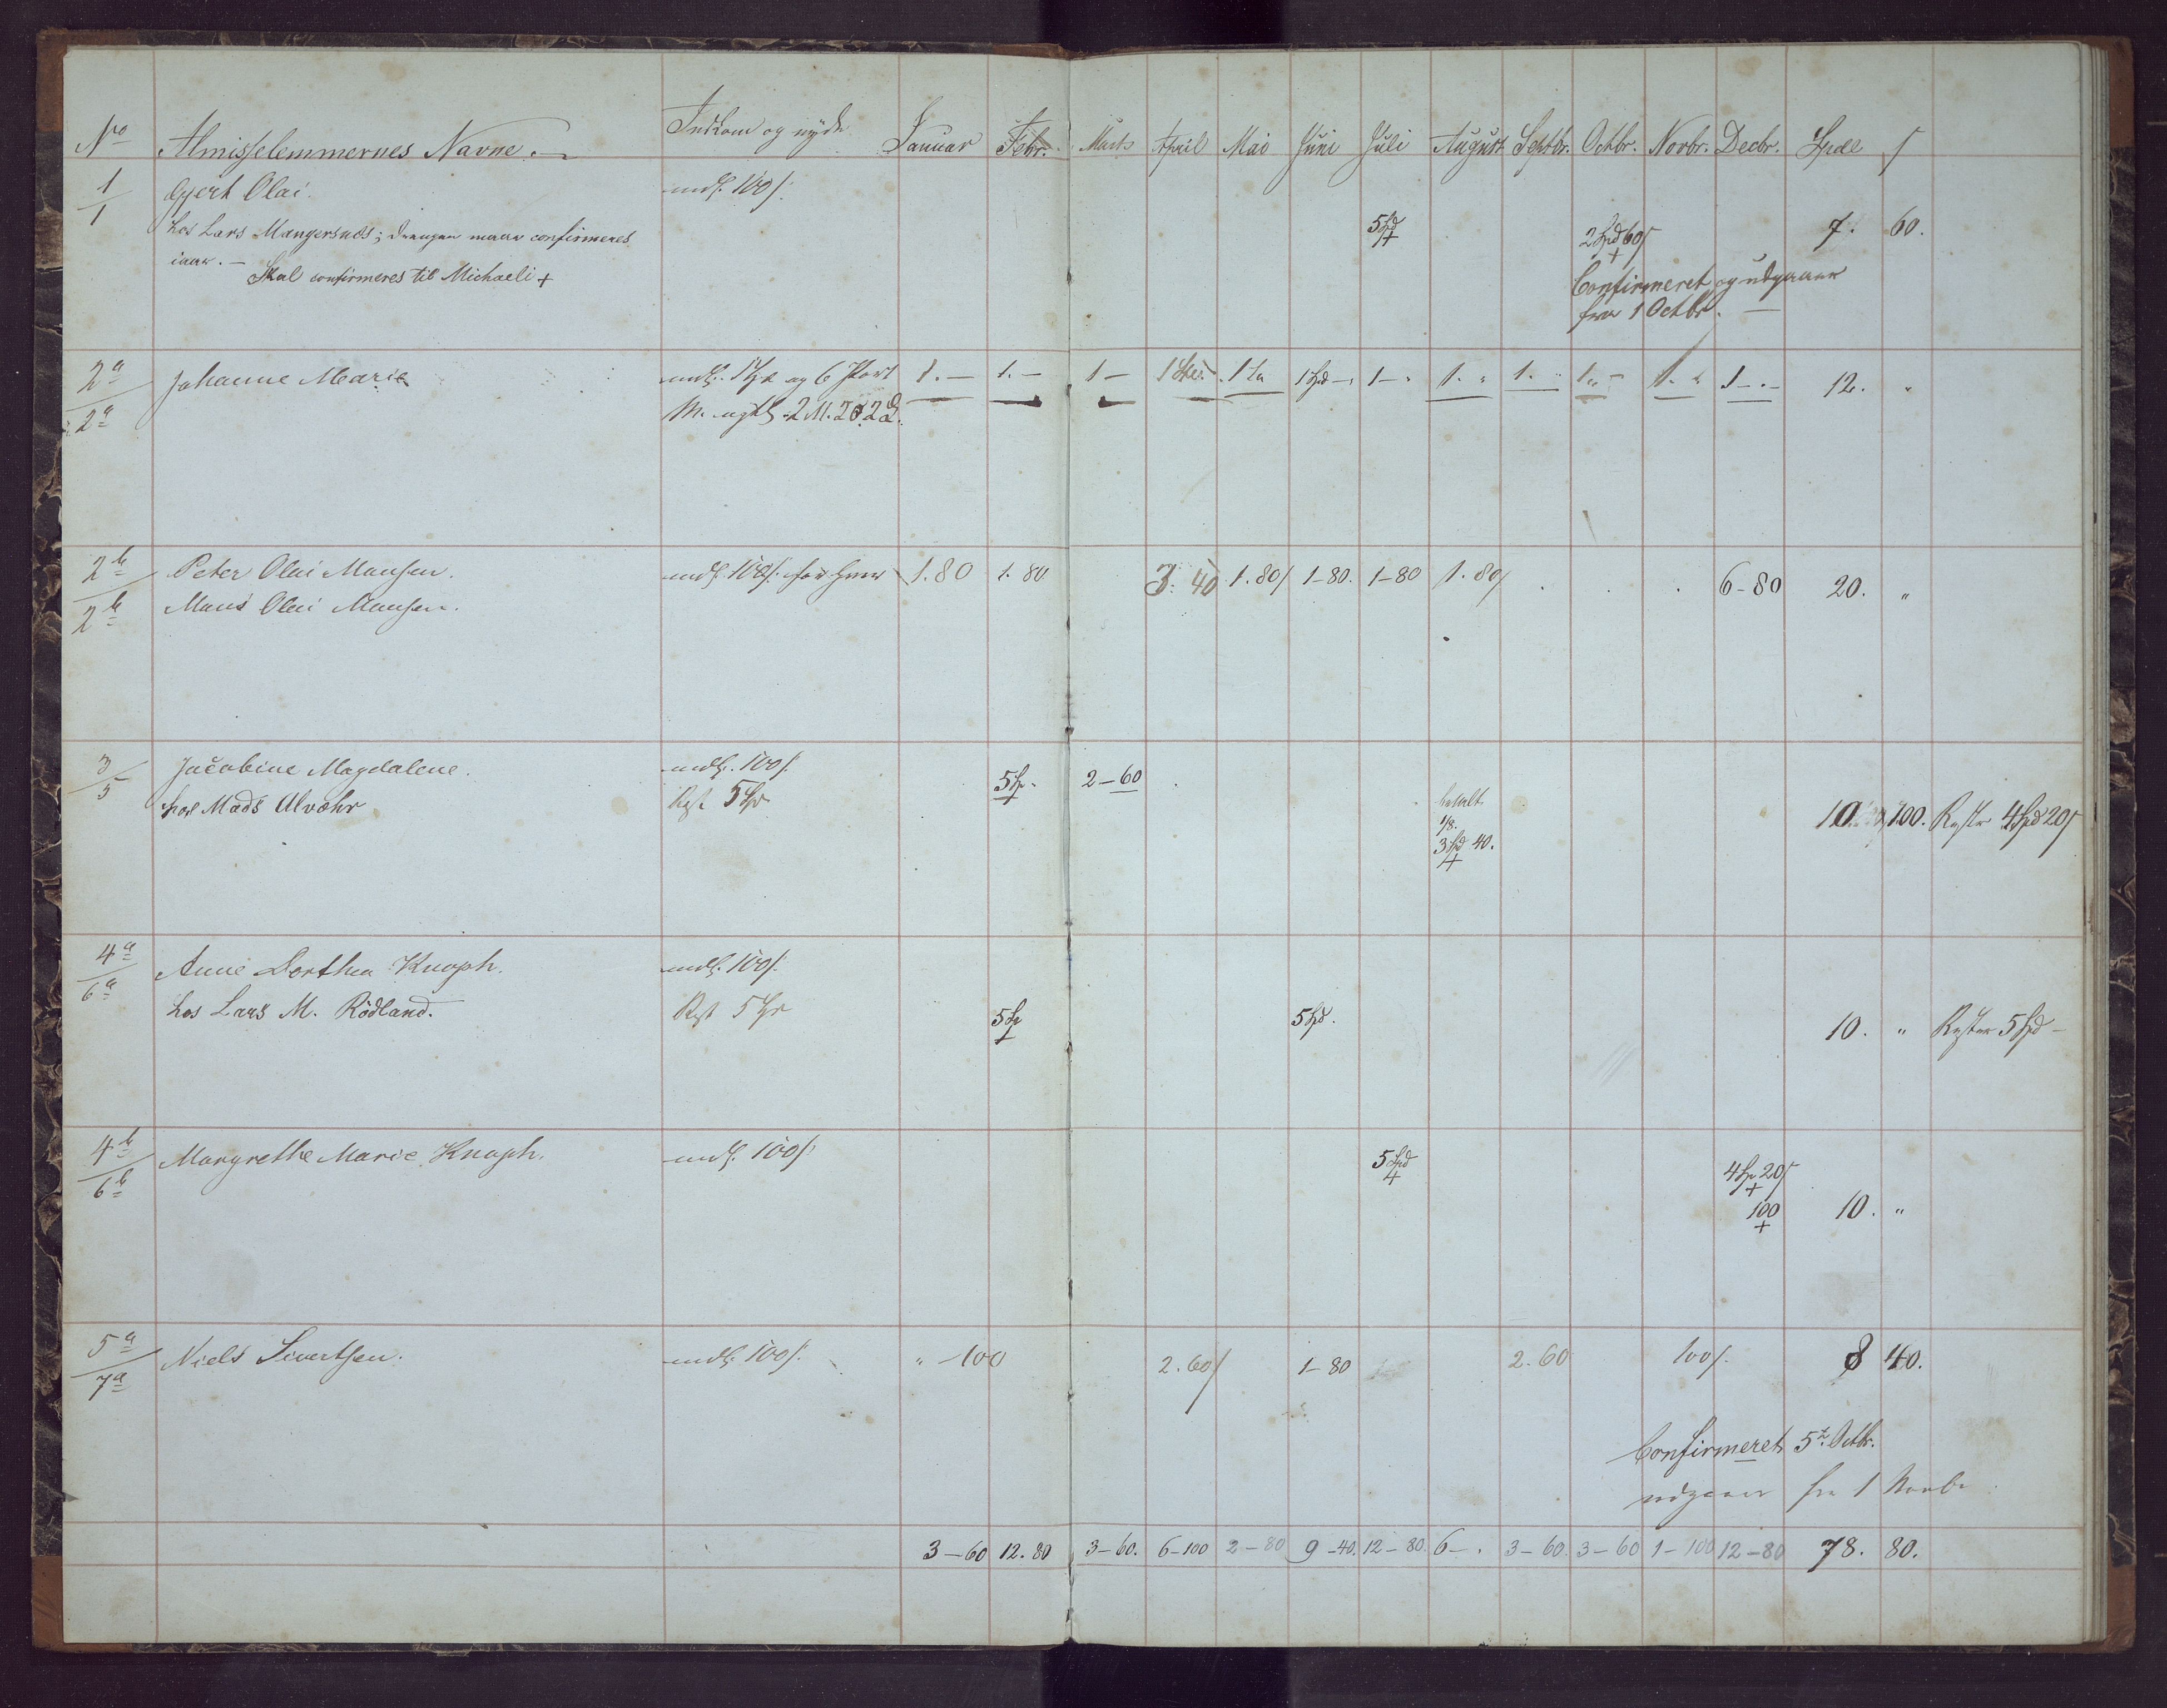 No Almisselemmernes Navne.— Indkom og nyde Januar Febr. Marts April Mai Juni Juli August Septbr. Octbr. Novbr. Decbr. Spdl ſ
1/1 Gjert Olai. mdl. 100ſ.
hos Lars Mangersnæs; Drengen maae confirmeres 5 Spd 2 Spd 60ſ 7. 60.
iaar.— Skal confirmeres til Michaeli + Confirmeret og udgaaer
fra 1 Octbr.—
2a/2a Johanne Marie mdl. 1 Spd og 6 1.— 1.— 1— 1 1 1 Spd— 1— 1. " 1. " 1 " — 1. " 1—.— 12. "
2b/2b Peter Olai Monsen. mdl. 100ſ. for hver 1.80 1.80 3.40 1.80ſ 1-80. 1-80 1.80ſ 6-80 20. "
Mons Olai Monsen.
3/5 Jacobine Magdalene. mdl. 100ſ.
hos Mads Alvøhr Rest 5 Spd 5 Sp. 2—60 betalt 1/8. 3 Spd 40. 10. 100. Rester 4 Spd 20ſ
4a/6a Anne Dorthea Knoph. mdl. 100ſ.
hos Lars M. Rödland. Rest 5 Spd 5 Sp 5 Spd. 10. " Rester 5 Spd—
4b/6b Margrethe Marie Knoph. mdl. 100ſ 5 Spd 4 Sp 20ſ
100 10. "
5a/7a Niels Sivertsen. mdl. 100ſ. " -100 2.60ſ 1-80 2.60 100ſ. 8 40.
Confirmeret 5te Octbr.
udgaaer fra 1 Novbr
3—60 12.80 3—60. 6-100 2—80 9-40. 12—80. 6—. 3—60. 3—60 1—100 12—80 78. 80.